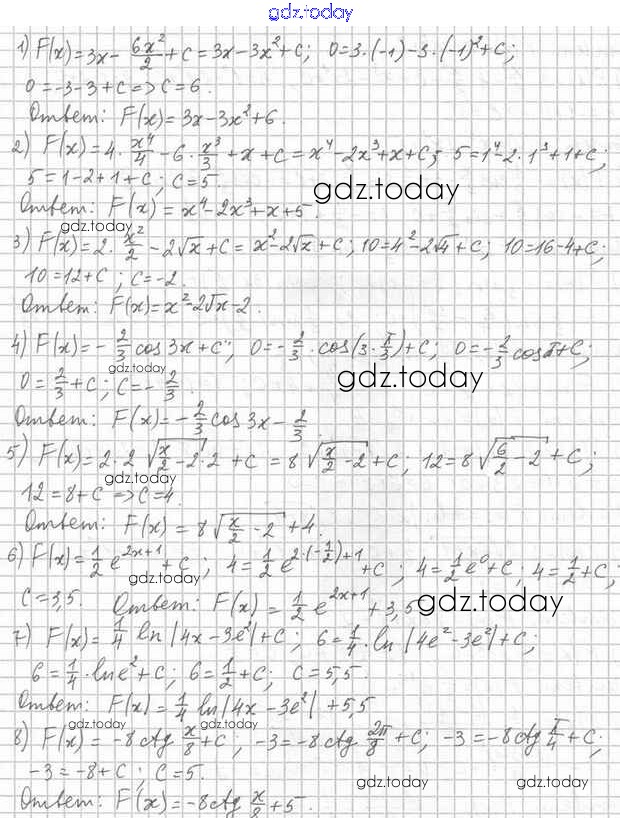 gdz.today
1) F(x)=3x- 6x²/2 +C=3x-3x²+C; 0=3·(-1)-3·(-1)²+C;
0=-3-3+C=>C=6.
Ответ: F(x)=3x-3x²+6.
2) F(x)=4·x⁴/4-6·x³/3+x+C=x⁴-2x³+x+C; 5=1⁴-2·1³+1+C;
5=1-2+1+C; C=5.
gdz.today
Ответ: F(x)=x⁴-2x³+x+5.
gdz.today
3) F(x)=2·x²/2-2√x+C=x²-2√x+C; 10=4²-2√4+C; 10=16-4+C;
10=12+C; C=-2.
Ответ: F(x)=x²-2√x-2.
4) F(x)=-2/3 cos3x+C; 0=-2/3·cos(3·π/3)+C; 0=-2/3 cosπ+C;
0=2/3+C; C=-2/3.
gdz.today
Ответ: F(x)=-2/3 cos3x-2/3.
5) F(x)=2·2√(x/2-2)·2+C=8√(x/2-2)+C; 12=8√(6/2-2)+C;
gdz.today
12=8+C=>C=4.
gdz.today
Ответ: F(x)=8√(x/2-2)+4.
6) F(x)=1/2 e²ˣ⁺¹+C; 4=1/2 e^(2·(-1/2)+1)+C; 4=1/2 e⁰+C; 4=1/2+C;
gdz.today
C=3,5. Ответ: F(x)=1/2 e²ˣ⁺¹+3,5
gdz.today
7) F(x)=1/4 ln|4x-3e²|+C; 6=1/4·ln|4e²-3e²|+C;
gdz.today
6=1/4·lne²+C; 6=1/2+C; C=5,5
Ответ: F(x)=1/4 ln|4x-3e²|+5,5
gdz.today
gdz.today
8) F(x)=-8ctg x/8+C; -3=-8ctg 2π/8+C; -3=-8ctg π/4+C;
-3=-8+C; C=5.
gdz.today
gdz.today
gdz.today
Ответ: F(x)=-8ctg x/8+5.